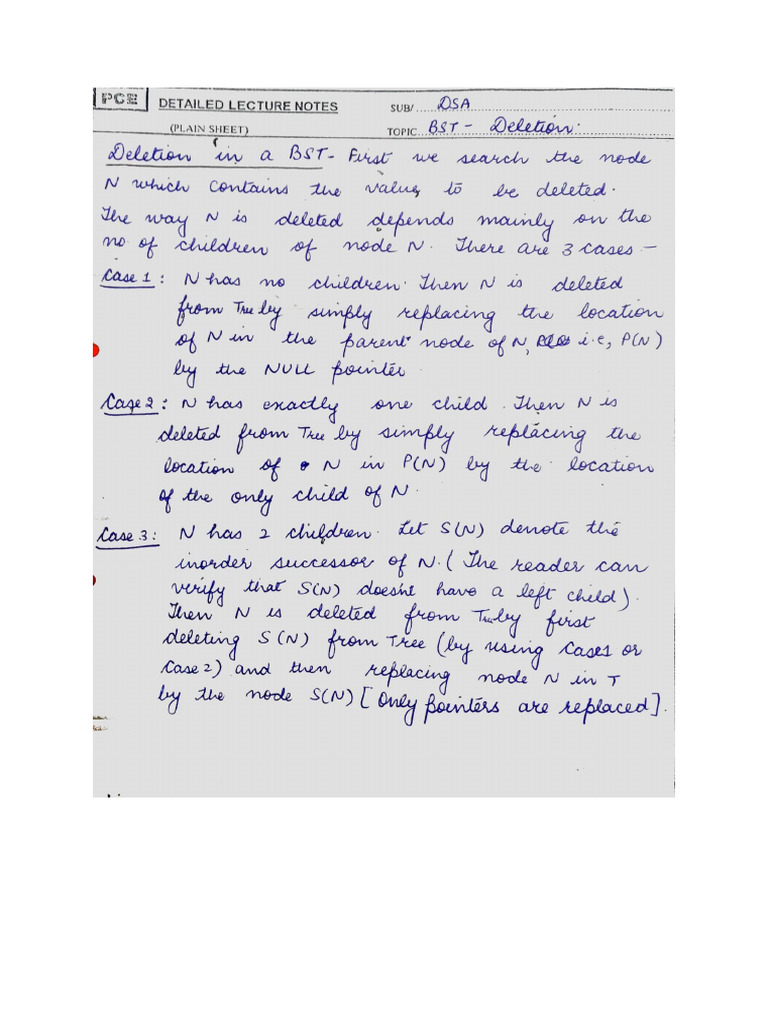 PCE DETAILED LECTURE NOTES SUB/ DSA
(PLAIN SHEET) TOPIC BST - Deletion.
Deletion in a BST - First we search the node
N which contains the value, to be deleted.
The way N is deleted depends mainly on the
no of children of node N. There are 3 cases -
Case 1: N has no children. Then N is deleted
from Tree by simply replacing the location
of N in the parent node of N, i.e, P(N)
by the NULL pointer
Case 2: N has exactly one child. Then N is
deleted from Tree by simply replacing the
location of N in P(N) by the location
of the only child of N.
Case 3: N has 2 children. Let S(N) denote the
inorder successor of N. (The reader can
verify that S(N) doesn't have a left child).
Then N is deleted from Tree by first
deleting S(N) from Tree (by using Case1 or
Case 2) and then replacing node N in T
by the node S(N) [Only pointers are replaced].